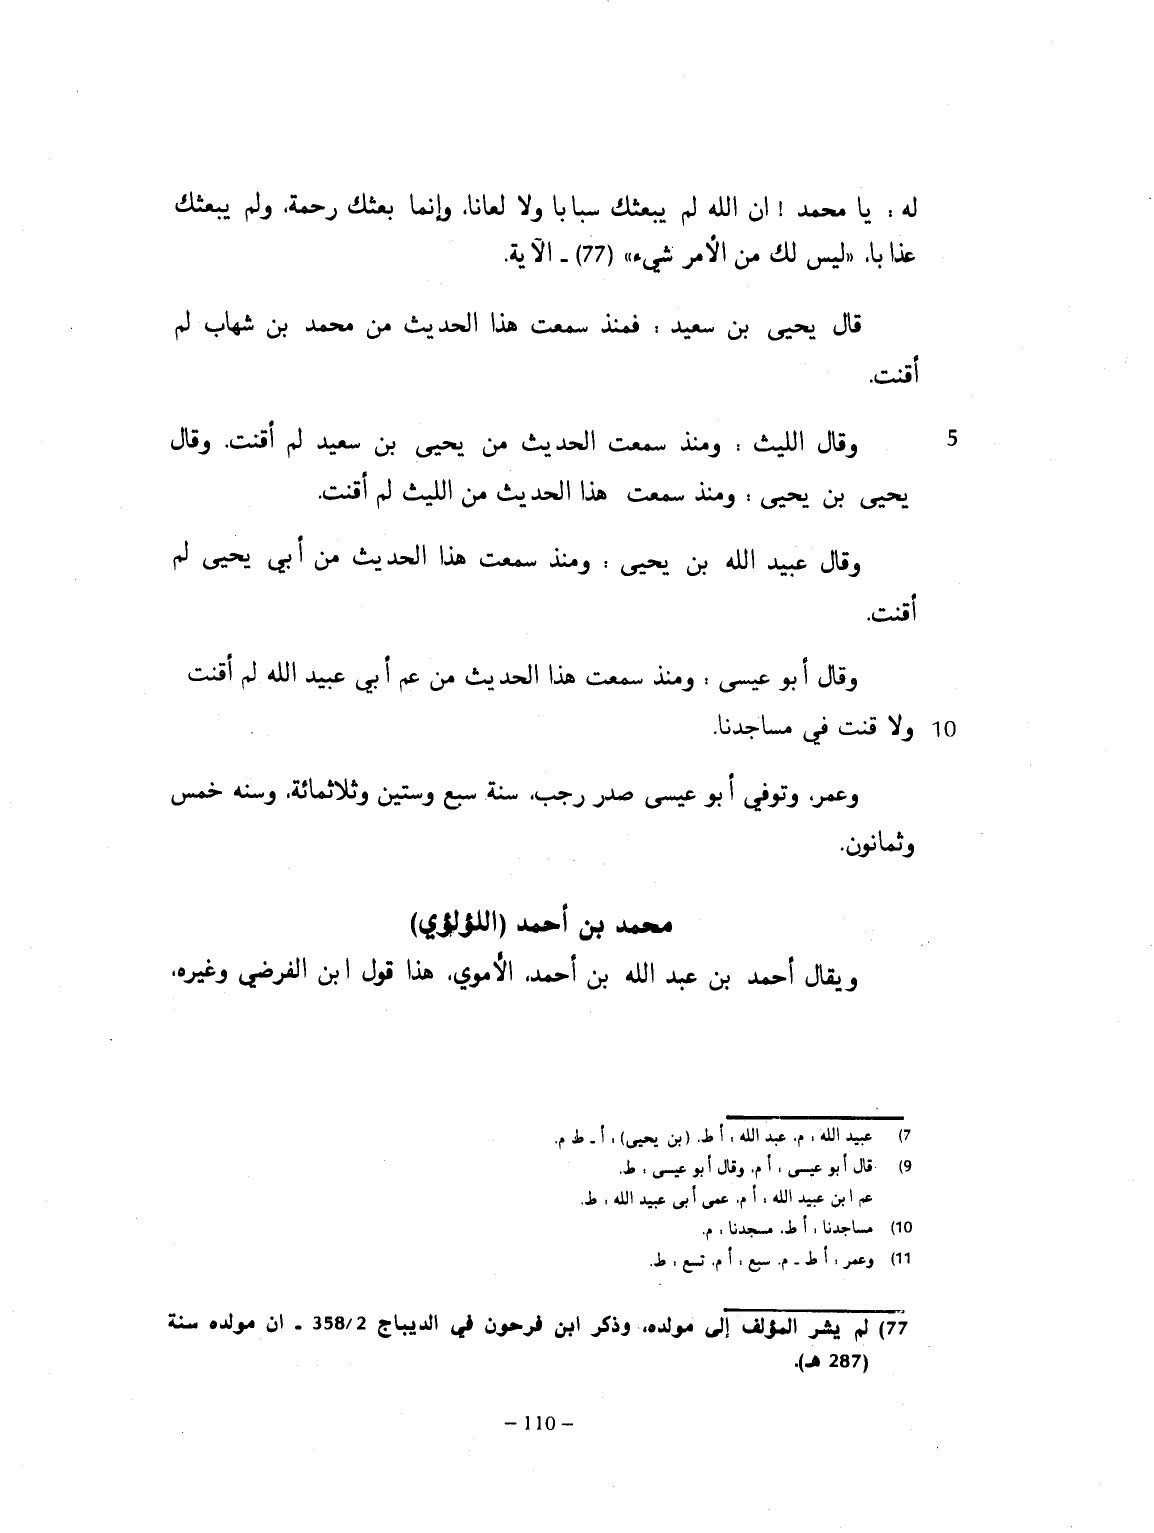 له : يا محمد ! ان الله لم يبعثك سبابا ولا لعانا، وإنما بعثك رحمة، ولم يبعثك
عذابا، «ليس لك من الأمر شيء» (77) ـ الآية.
قال يحيى بن سعيد : فمنذ سمعت هذا الحديث من محمد بن شهاب لم
أقنت.
5 وقال الليث : ومنذ سمعت الحديث من يحيى بن سعيد لم أقنت. وقال
يحيى بن يحيى : ومنذ سمعت هذا الحديث من الليث لم أقنت.
وقال عبيد الله بن يحيى : ومنذ سمعت هذا الحديث من أبي يحيى لم
أقنت.
وقال أبو عيسى : ومنذ سمعت هذا الحديث من عم أبي عبيد الله لم أقنت
10 ولا قنت في مساجدنا.
وعمر، وتوفي أبو عيسى صدر رجب، سنة سبع وستين وثلاثمائة، وسنه خمس
وثمانون.
محمد بن أحمد (اللؤلؤي)
ويقال أحمد بن عبد الله بن أحمد، الأموي، هذا قول ابن الفرضي وغيره،
7) عبيد الله : م. عبد الله : أ ط. (بن يحيى) : أ ـ ط م.
9) قال أبو عيسى : أ م. وقال أبو عيسى : ط.
عم ابن عبيد الله : أ م. عمى أبى عبيد الله : ط.
10) مساجدنا : أ ط. مسجدنا : م.
11) وعمر : أ ط ـ م. سبع : أ م. تسع : ط.
77) لم يشر المؤلف إلى مولده، وذكر ابن فرحون في الديباج 358/2 ـ ان مولده سنة
(287 هـ).
– 110 –